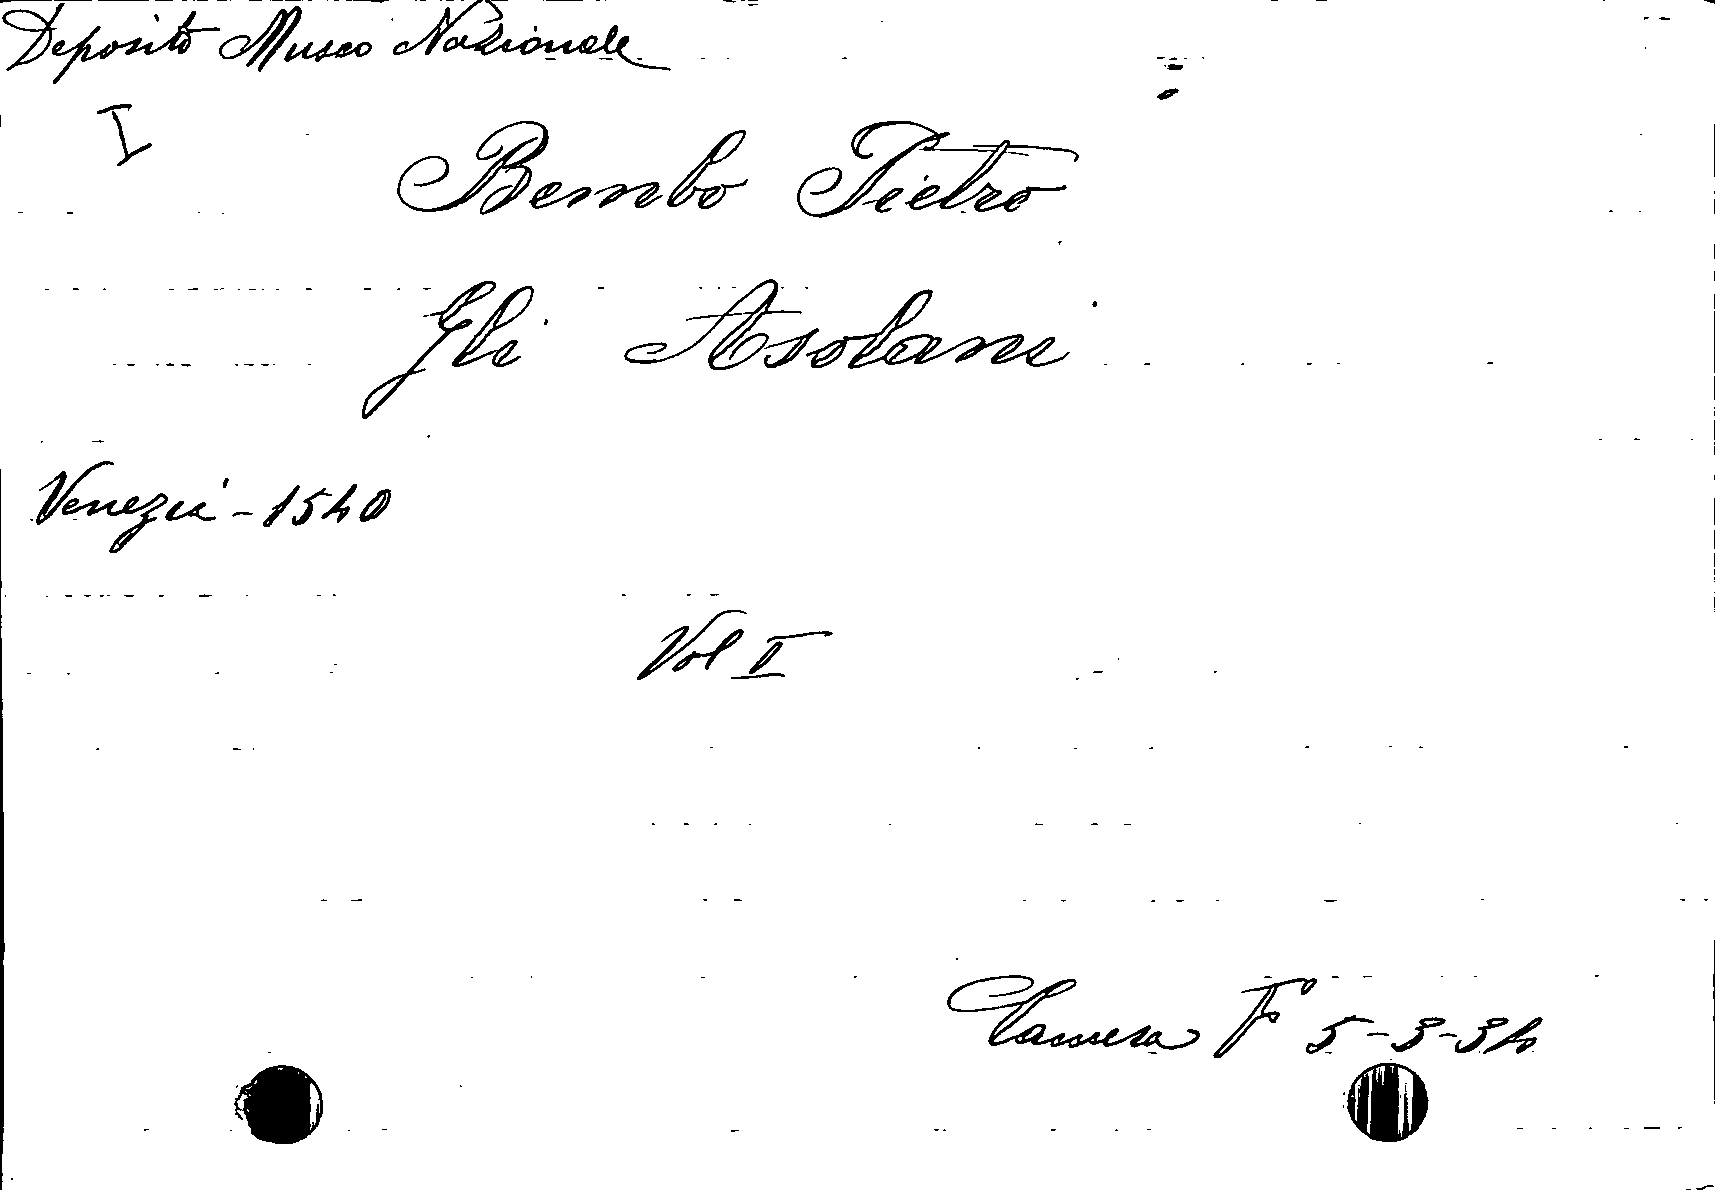 Deposito Museo Nazionale
I
Bembo Pietro
Gli Asolani
Venezia - 1540
Vol I
Camera F 5-3-34